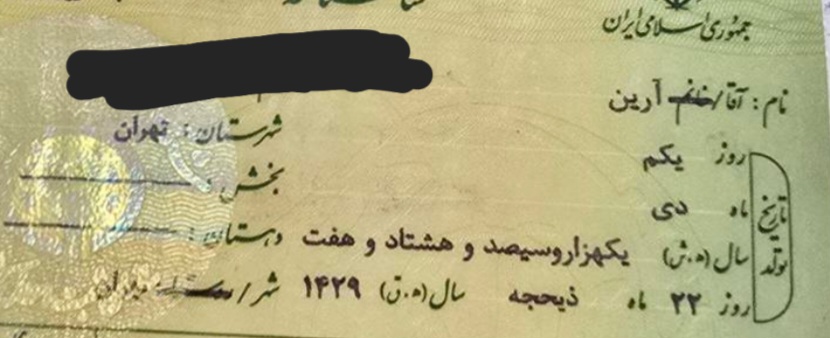 جمهوری اسلامی ایران
نام : آقا/خانم آرین
شهرستان : تهران
روز یکم
بخش :
ماه دی
تاریخ تولد
سال (ه.ش) یکهزاروسیصد و هشتاد و هفت
دهستان :
روز ۲۲ ماه ذیحجه سال (ه.ق) ۱۴۲۹
شهر/